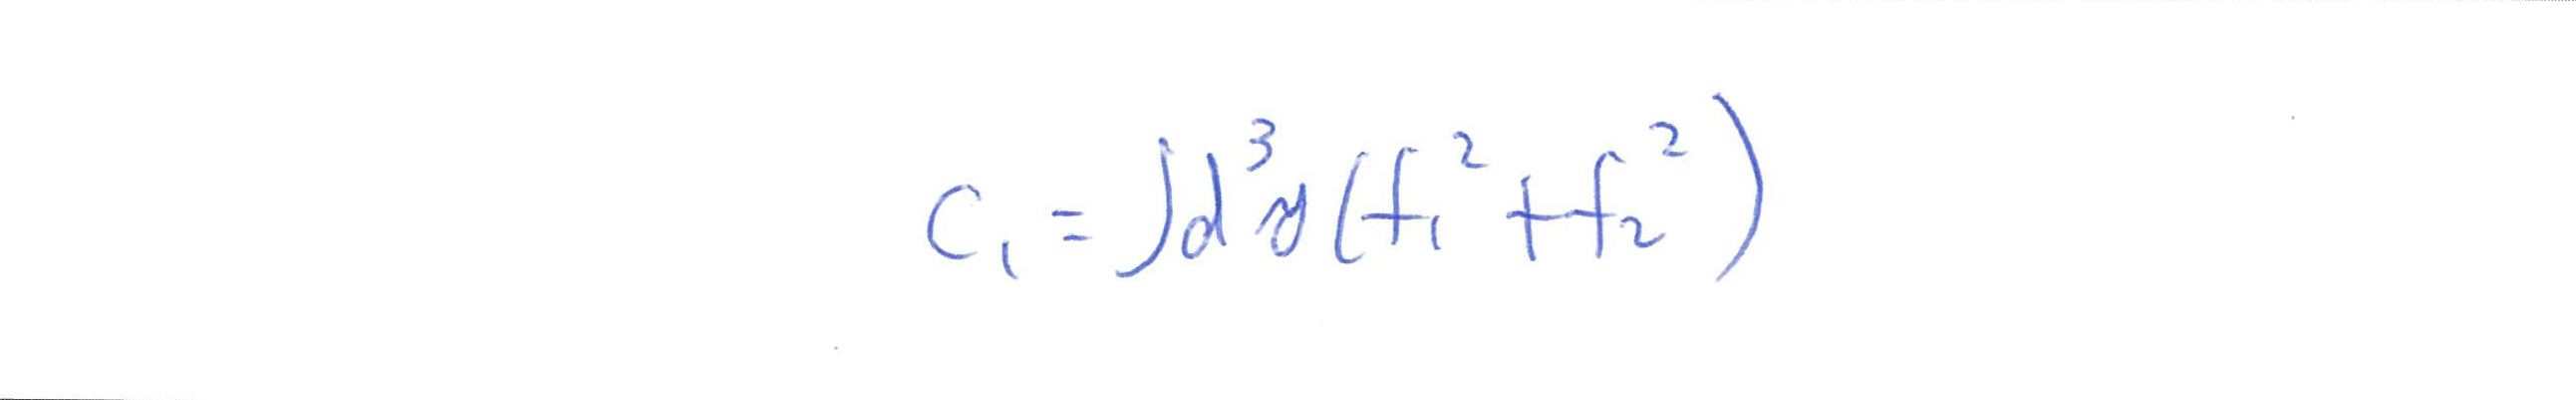 C₁ = ∫d³y(f₁² + f₂²)